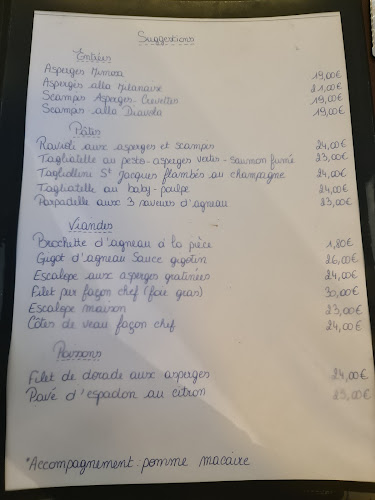 Suggestions
Entrées
Asperges Mimosa 19,00€
Asperges alla Milanaise 21,00€
Scampis Asperges-Crevettes 19,00€
Scampis alla Diavola 19,00€
Pâtes
Ravioli aux asperges et scampis 24,00€
Tagliatelle au pesto-asperges vertes-saumon fumé 23,00€
Tagliolini St Jacques flambés au champagne 24,00€
Tagliatelle au baby-poulpe 24,00€
Parpadelle aux 3 saveurs d'agneau 23,00€
Viandes
Brochette d'agneau à la pièce 1,80€
Gigot d'agneau sauce gigotin 26,00€
Escalope aux asperges gratinées 24,00€
Filet pur façon chef (foie gras) 30,00€
Escalope maison 23,00€
Côtes de veau façon chef 24,00€
Poissons
Filet de dorade aux asperges 24,00€
Pavé d'espadon au citron 25,00€
*Accompagnement pomme macaire